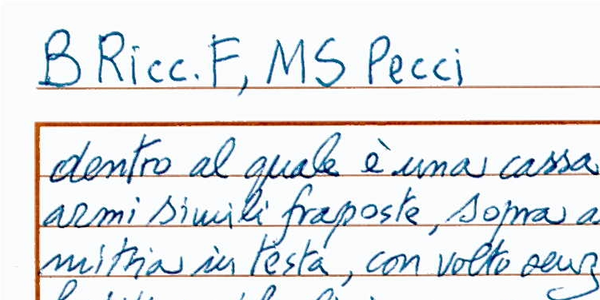 B Ricc. F, MS Pecci
dentro al quale è una cassa
armi simili fraposte, sopra a
mitria in testa, con volto senz